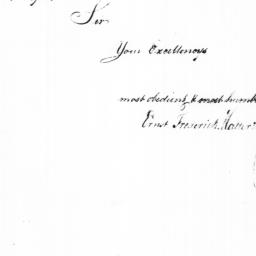 Sir
Your Excellencys
most obedient & most humb
Ernst Frederick